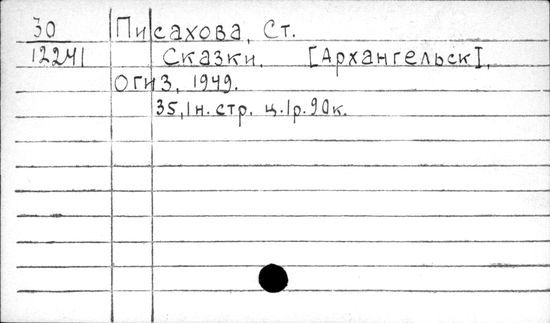 30 Писахова, Ст.
12241 Сказки. [Архангельск],
ОГИЗ, 1949.
35, 1н. стр. ц. 1р. 90к.